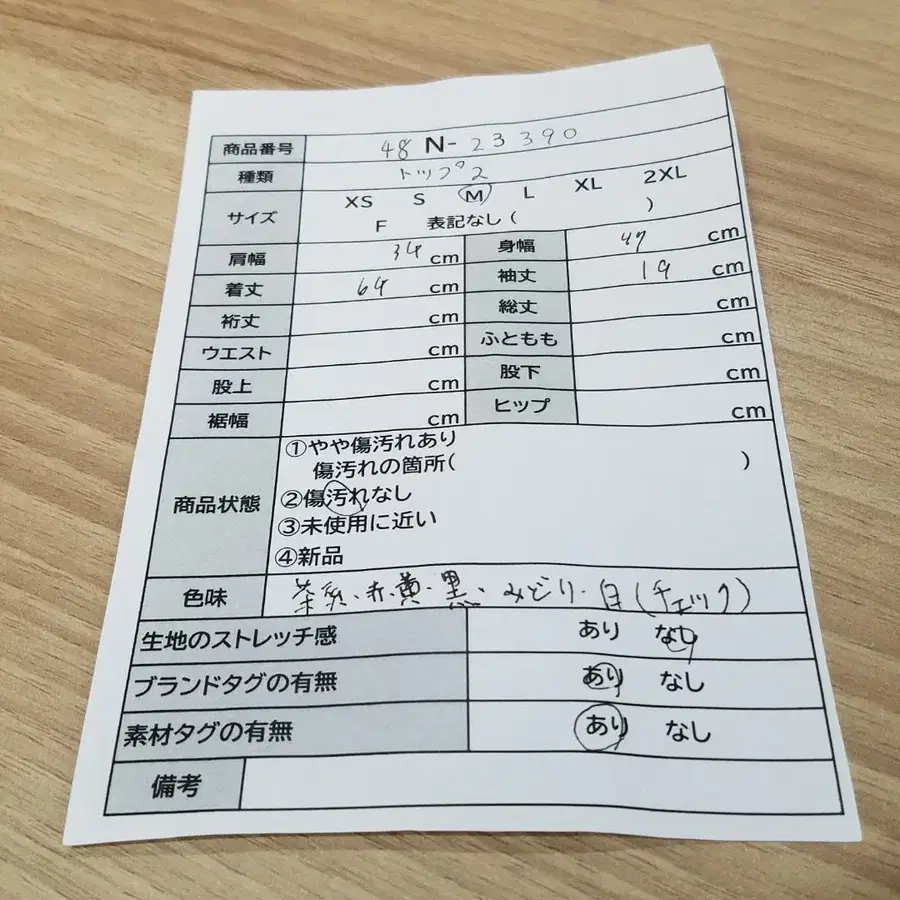 商品番号 48 N- 23390
種類 トップス
サイズ XS S M L XL 2XL
F 表記なし( )
肩幅 34 cm 身幅 47 cm
着丈 64 cm 袖丈 19 cm
裄丈 cm 総丈 cm
ウエスト cm ふともも cm
股上 cm 股下 cm
裾幅 cm ヒップ cm
商品状態 ①やや傷汚れあり
傷汚れの箇所( )
②傷汚れなし
③未使用に近い
④新品
色味 茶系・赤・黄・黒・みどり・白(チェック)
生地のストレッチ感 あり なし
ブランドタグの有無 あり なし
素材タグの有無 あり なし
備考